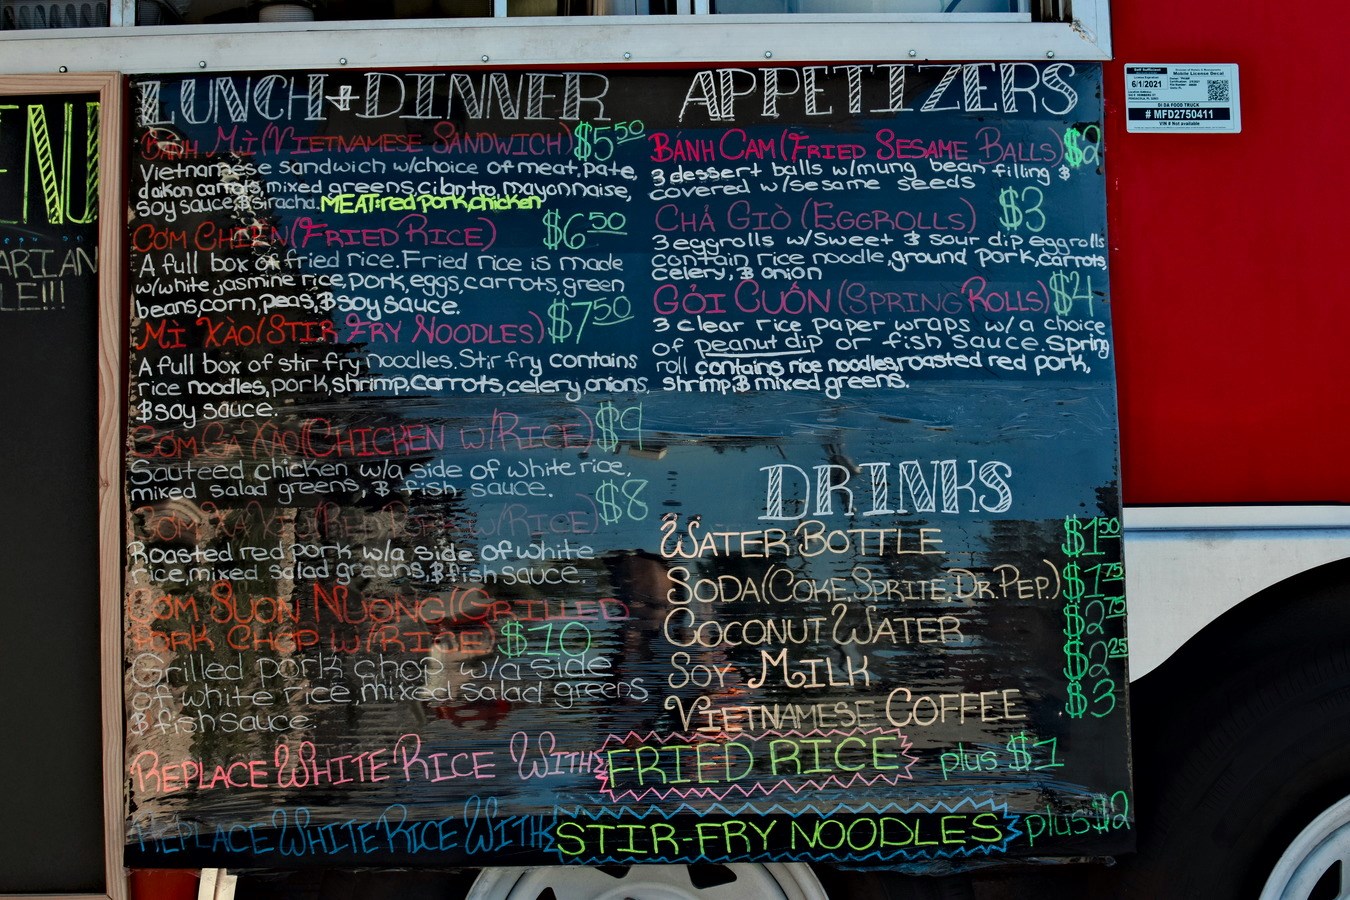 ENU
ARIAN
LE!!!
LUNCH+DINNER
BÁNH MÌ(VIETNAMESE SANDWICH) $5.50
Vietnamese sandwich w/choice of meat, pate,
daikon carrots, mixed greens, cilantro, mayonnaise,
soy sauce, & siracha. MEAT: red pork, chicken
CƠM CHIÊN(FRIED RICE) $6.50
A full box of fried rice. Fried rice is made
w/white jasmine rice, pork, eggs, carrots, green
beans, corn, peas, & soy sauce.
MÌ XÀO(STIR FRY NOODLES) $7.50
A full box of stir fry noodles. Stir fry contains
rice noodles, pork, shrimp, carrots, celery, onions,
& soy sauce.
CƠM GÀ XÀO(CHICKEN W/RICE) $9
Sauteed chicken w/a side of white rice,
mixed salad greens, & fish sauce.
CƠM XÁ XÍU(RED PORK W/RICE) $8
Roasted red pork w/a side of white
rice, mixed salad greens, & fish sauce.
CƠM SUON NUONG(GRILLED
PORK CHOP W/RICE) $10
Grilled pork chop w/a side
of white rice, mixed salad greens
& fish sauce.
APPETIZERS
BÁNH CAM(FRIED SESAME BALLS) $2
3 dessert balls w/mung bean filling &
covered w/sesame seeds
CHẢ GIÒ (EGGROLLS) $3
3 eggrolls w/sweet & sour dip eggrolls
contain rice noodle, ground pork, carrots,
celery, & onion
GỎI CUỐN (SPRING ROLLS) $4
3 clear rice paper wraps w/a choice
of peanut dip or fish sauce. Spring
roll contains rice noodles, roasted red pork,
shrimp, & mixed greens.
DRINKS
WATER BOTTLE $1.50
SODA(COKE, SPRITE, DR. PEP.) $1.75
COCONUT WATER $2.75
SOY MILK $2.25
VIETNAMESE COFFEE $3
REPLACE WHITE RICE WITH FRIED RICE plus $1
REPLACE WHITE RICE WITH STIR-FRY NOODLES plus $2
Mobile License Decal
6/1/2021
DI DA FOOD TRUCK
# MFD2750411
VIN # Not available